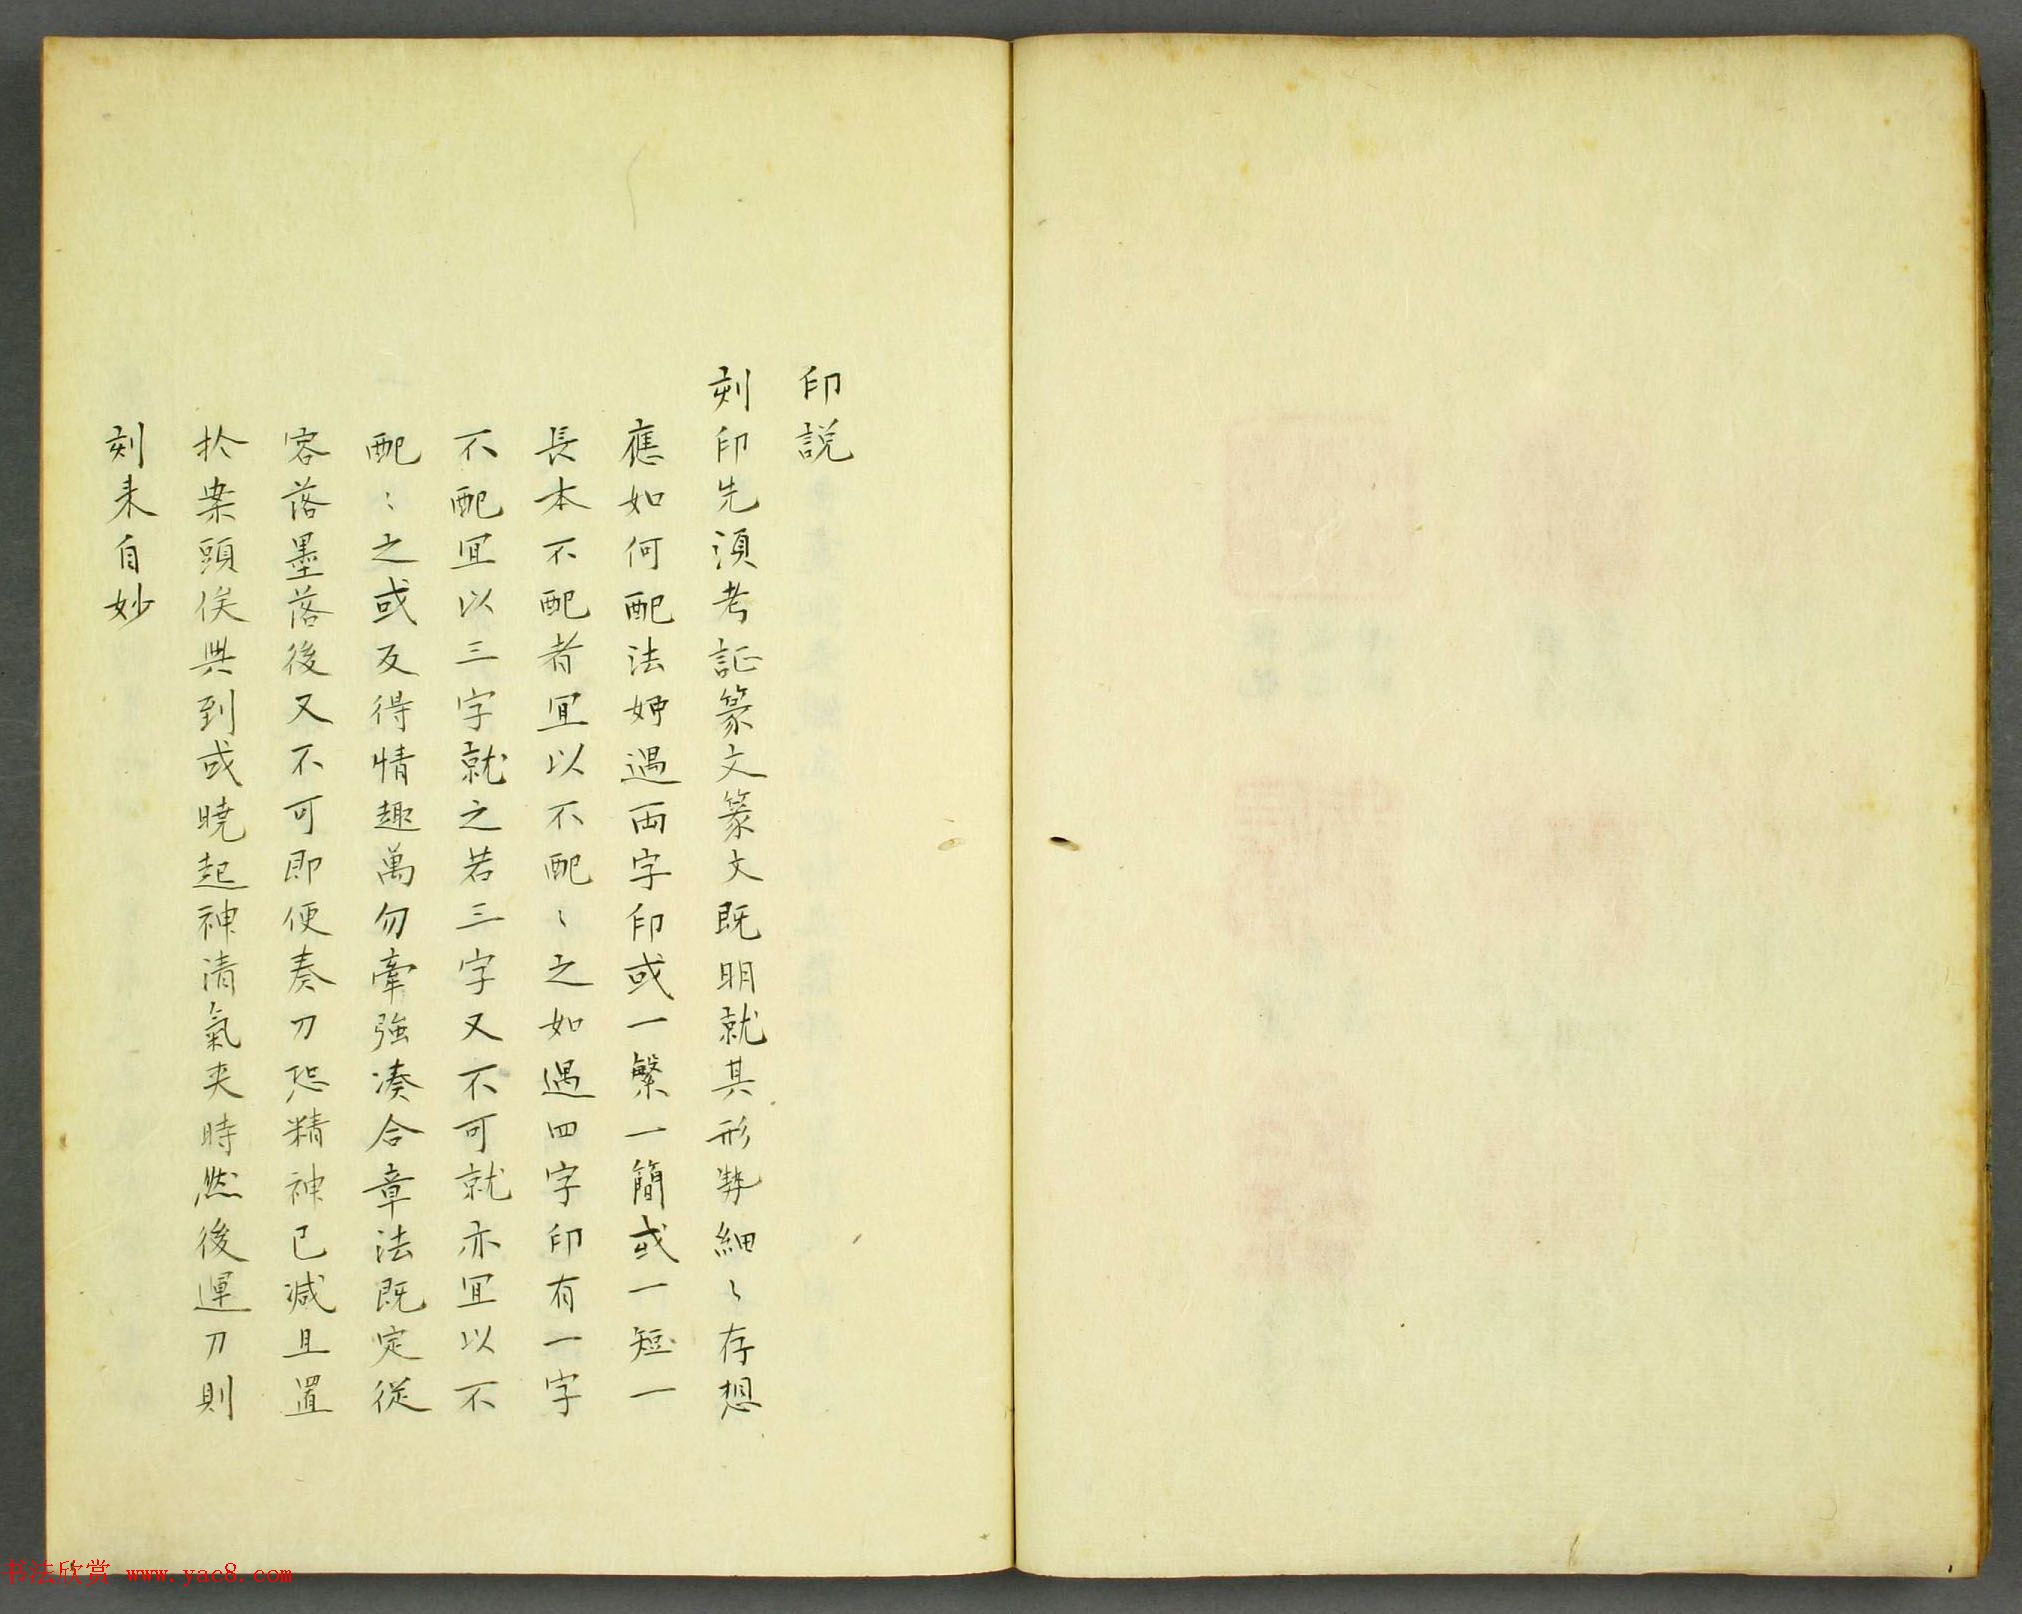 印說
刻印先湏考証篆文篆文既明就其形勢細〻存想
應如何配法如遇兩字印或一繁一簡或一短一
長本不配者宜以不配〻之如遇四字印有一字
不配宜以三字就之若三字又不可就亦宜以不
配〻之或反得情趣萬勿牽強湊合章法既定從
容落墨落後又不可即便奏刀恐精神已減且置
於案頭俟興到或曉起神清氣爽時然後運刀則
刻来自妙
书法欣赏 www.yac8.com